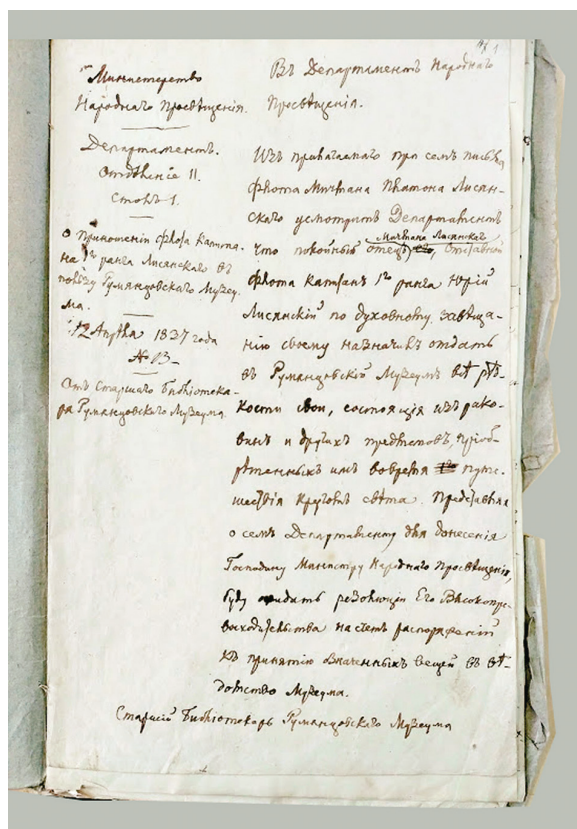 Министерство
Народнаго Просвѣщенія.
Департаментъ.
Отдѣленіе II.
Столъ 1.
О приношеніи флота Капита-
на 1го ранга Лисянскаго въ
пользу Румянцовскаго Музеу-
ма.
12 Апрѣля 1837 года
№ 13.
Отъ Старшаго Библіотека-
ря Румянцовскаго Музеума
1
Въ Департаментъ Народнаго
Просвѣщенія.
Изъ прилагаемаго при семъ письма
флота Мичмана Платона Лисян-
скаго усмотритъ Департаментъ
Мичмана Лисянскаго
что покойный отецъ, Отставной
флота Капитанъ 1го ранга Юрій
Лисянскій по духовному завѣща-
нію своему назначилъ отдать
въ Румянцовскій Музеумъ всѣ рѣд-
кости свои, состоящія изъ рако-
винъ и другихъ предметовъ, пріоб-
рѣтенныхъ имъ во время путе-
шествія кругомъ свѣта. Представляя
о семъ Департаменту для донесенія
Господину Министру Народнаго Просвѣщенія,
буду ожидать резолюціи Его Высокопре-
восходительства на счетъ распоряженій
къ принятію означенныхъ вещей въ вѣ-
домство Музеума.
Старшій Библіотекарь Румянцовскаго Музеума